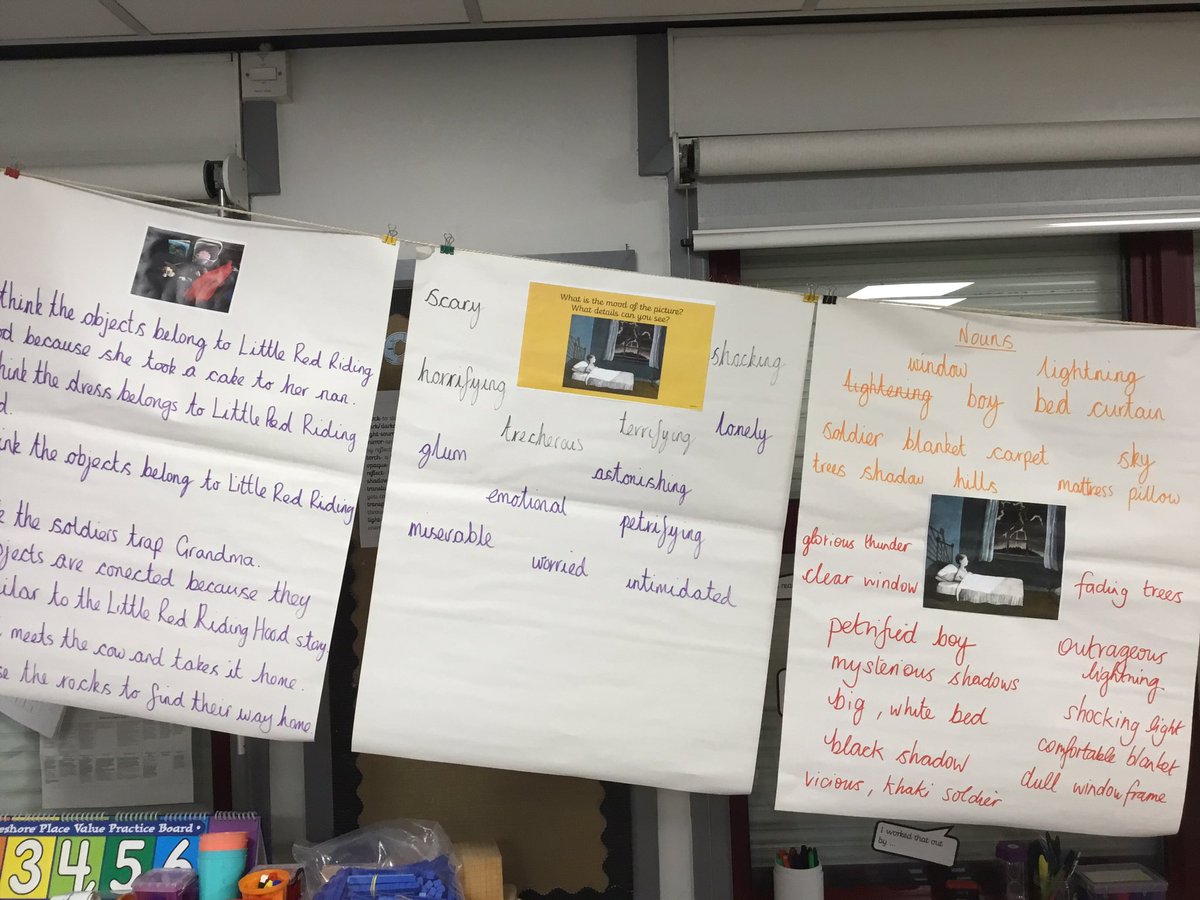 think the objects belong to Little Red Riding
because she took a cake to her nan.
think the dress belongs to Little Red Riding
think the objects belong to Little Red Riding
the soldiers trap Grandma.
objects are conected because they
similar to the Little Red Riding Hood story
meets the cow and takes it home.
the rocks to find their way home
scary
What is the mood of the picture?
What details can you see?
shocking
horrifying
trecherous
terrifying
lonely
glum
astonishing
emotional
petrifying
miserable
worried
intimidated
Nouns
window lightning
lightening boy bed curtain
soldier blanket carpet sky
trees shadow hills mattress pillow
glorious thunder
clear window
fading trees
petrified boy
outrageous
lightning
mysterious shadows
big, white bed
shocking light
black shadow
comfortable blanket
vicious, khaki soldier
dull windowframe
I worked that out
by ...
Place Value Practice Board
3 4 5 6